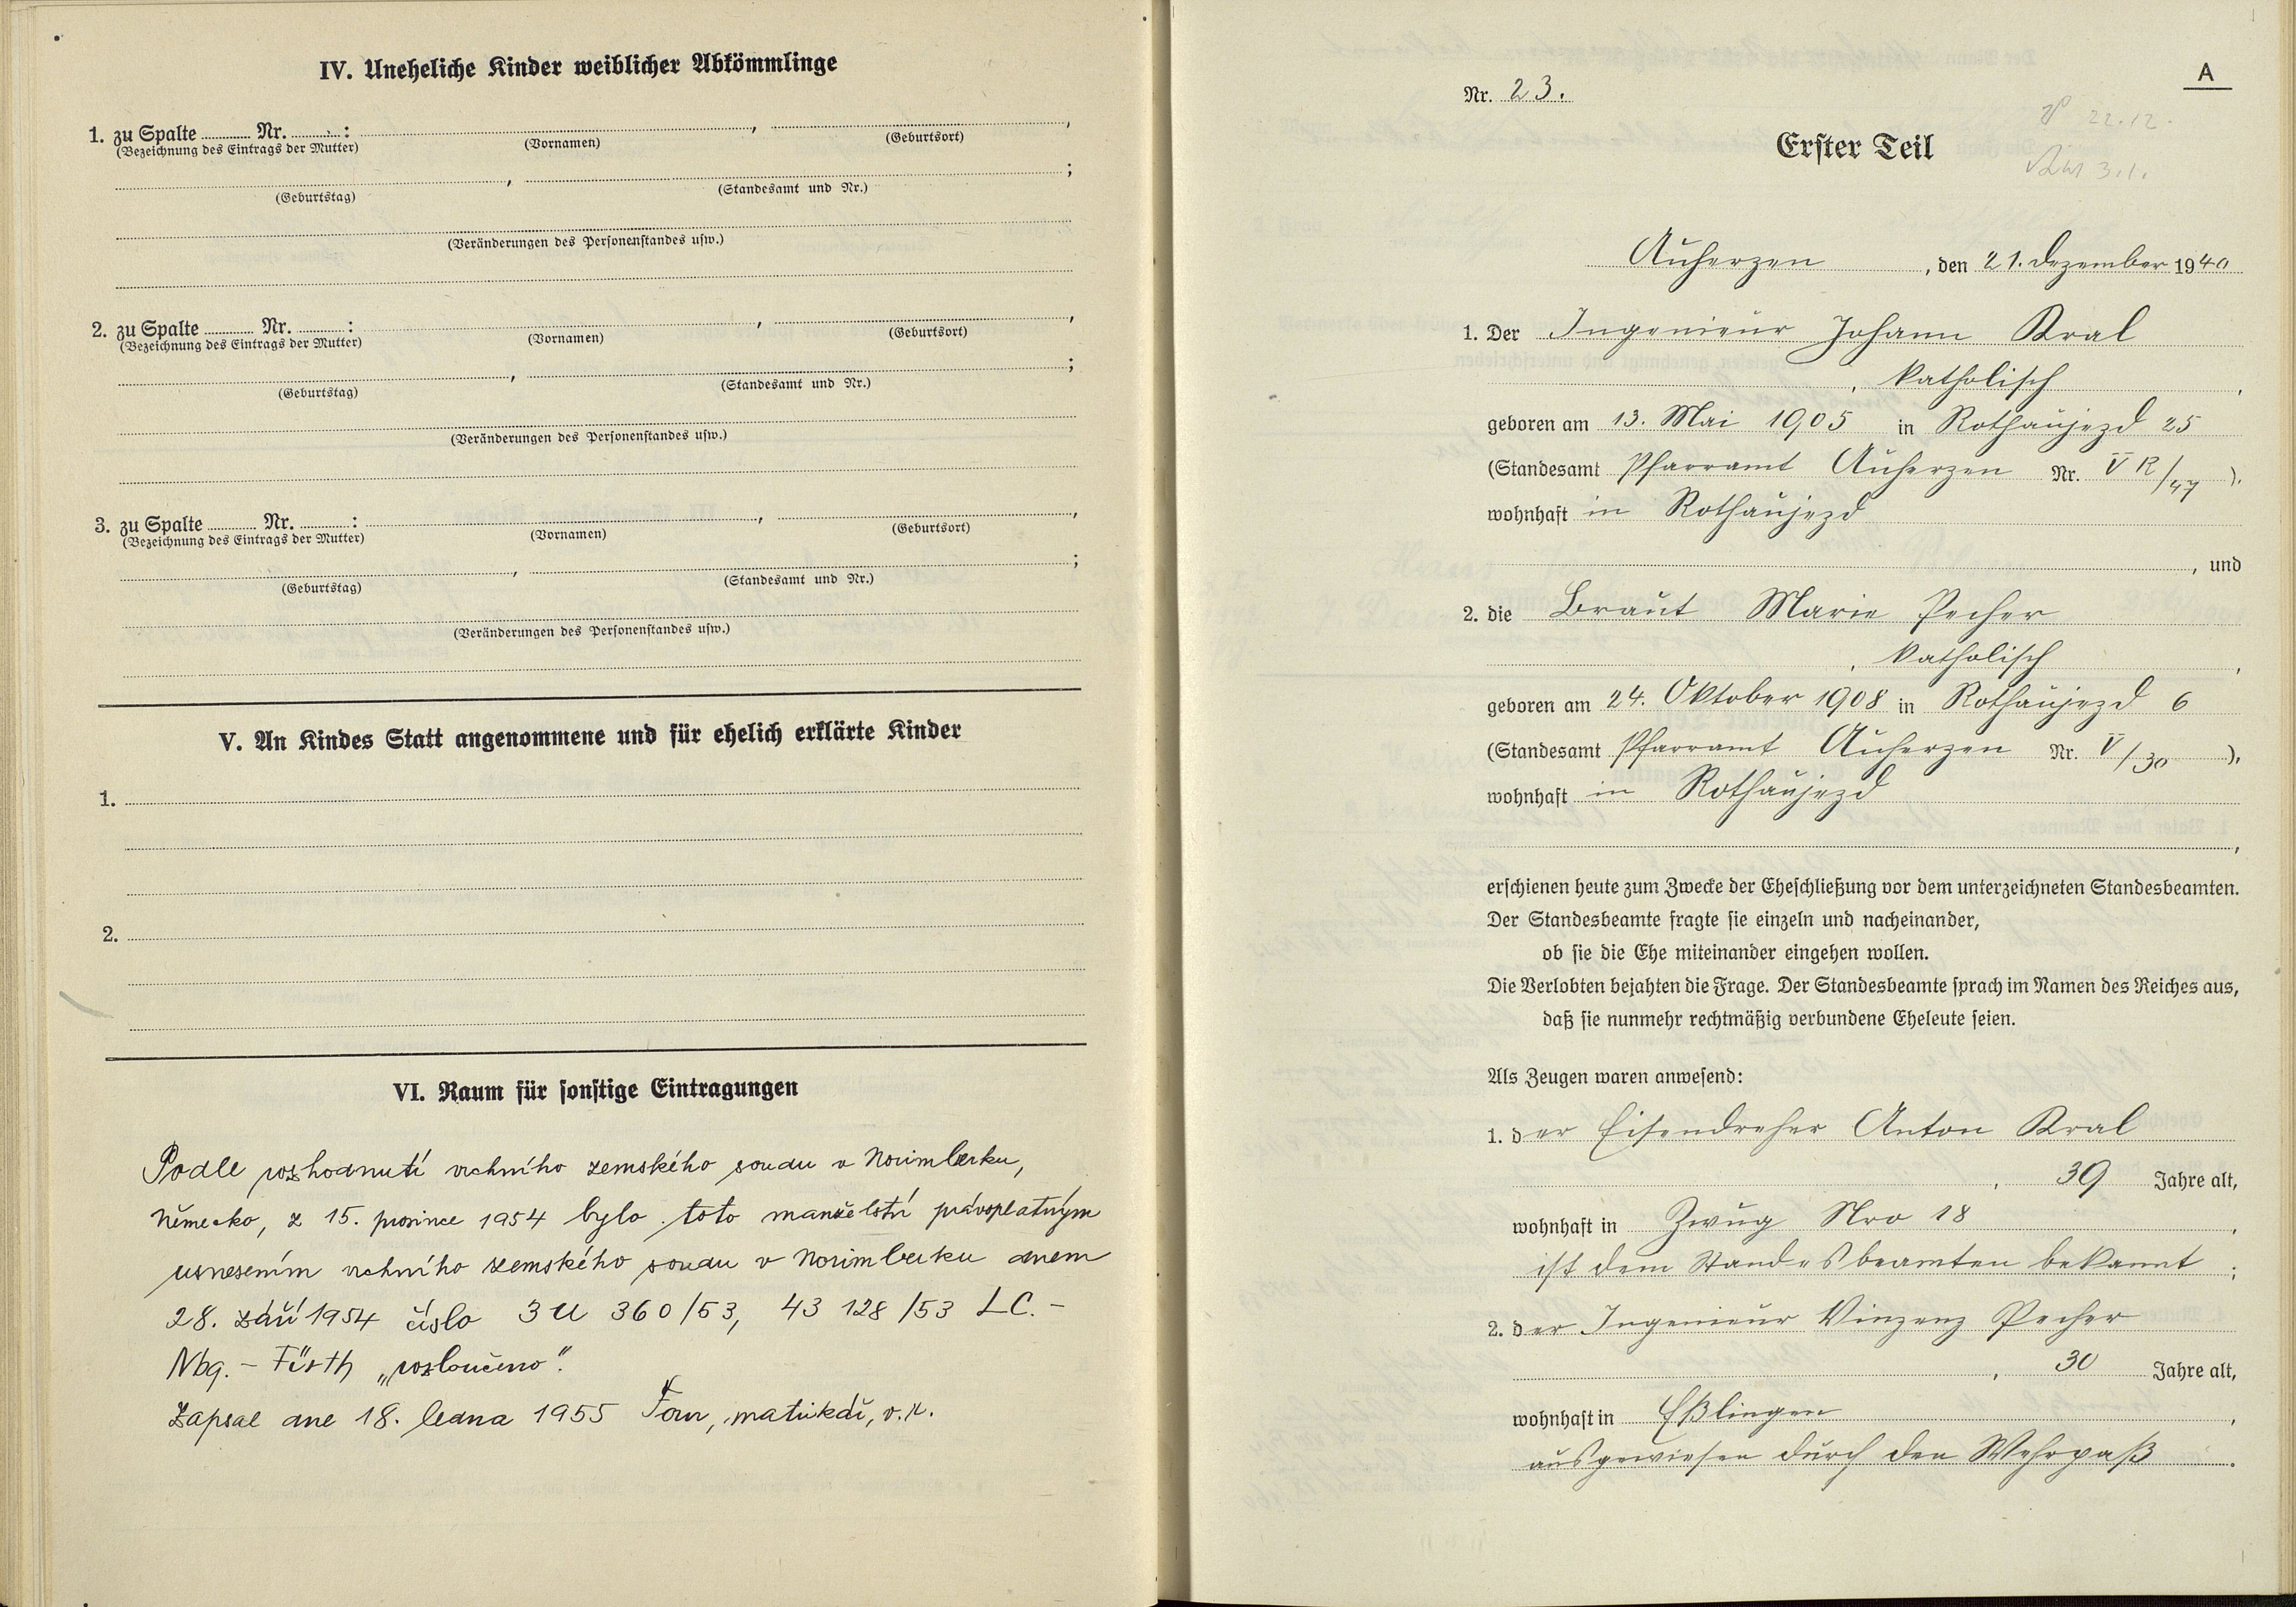 IV. Uneheliche Kinder weiblicher Abkömmlinge
1. zu Spalte ........ Nr. ........ :
(Bezeichnung des Eintrags der Mutter) (Vornamen) , (Geburtsort) ,
(Geburtstag) , (Standesamt und Nr.) ;
(Veränderungen des Personenstandes usw.)
2. zu Spalte ........ Nr. ........ :
(Bezeichnung des Eintrags der Mutter) (Vornamen) , (Geburtsort) ,
(Geburtstag) , (Standesamt und Nr.) ;
(Veränderungen des Personenstandes usw.)
3. zu Spalte ........ Nr. ........ :
(Bezeichnung des Eintrags der Mutter) (Vornamen) , (Geburtsort) ,
(Geburtstag) , (Standesamt und Nr.) ;
(Veränderungen des Personenstandes usw.)
V. An Kindes Statt angenommene und für ehelich erklärte Kinder
1.
2.
VI. Raum für sonstige Eintragungen
Podle rozhodnutí vrchního zemského soudu v Norimberku,
Německo, z 15. prosince 1954 bylo toto manželství právoplatným
usnesením vrchního zemského soudu v Norimberku dnem
28. září 1954 číslo 3 U 360/53, 43 128/53 LC. –
Nbg. – Fürth „rozloučeno".
Zapsal dne 18. ledna 1955 , matrikář, v.r.
A
Nr. 23.
22.12.
3.1.
Erster Teil
Auherzen , den 21. Dezember 1940
1. Der Ingenieur Johann Kral
, katholisch ,
geboren am 13. Mai 1905 in Rothaujezd 25
(Standesamt Pfarramt Auherzen Nr. V R/47 ),
wohnhaft in Rothaujezd
, und
2. die Braut Marie Pecher
, katholisch ,
geboren am 24. Oktober 1908 in Rothaujezd 6
(Standesamt Pfarramt Auherzen Nr. V/30 ),
wohnhaft in Rothaujezd
,
erschienen heute zum Zwecke der Eheschließung vor dem unterzeichneten Standesbeamten.
Der Standesbeamte fragte sie einzeln und nacheinander,
ob sie die Ehe miteinander eingehen wollen.
Die Verlobten bejahten die Frage. Der Standesbeamte sprach im Namen des Reiches aus,
daß sie nunmehr rechtmäßig verbundene Eheleute seien.
Als Zeugen waren anwesend:
1. der Eisendreher Anton Kral
, 39 Jahre alt,
wohnhaft in Zwug Nro 18 ,
ist dem Standesbeamten bekannt ;
2. der Ingenieur Vinzenz Pecher
, 30 Jahre alt,
wohnhaft in Eßlingen ,
ausgewiesen durch den Wehrpaß .